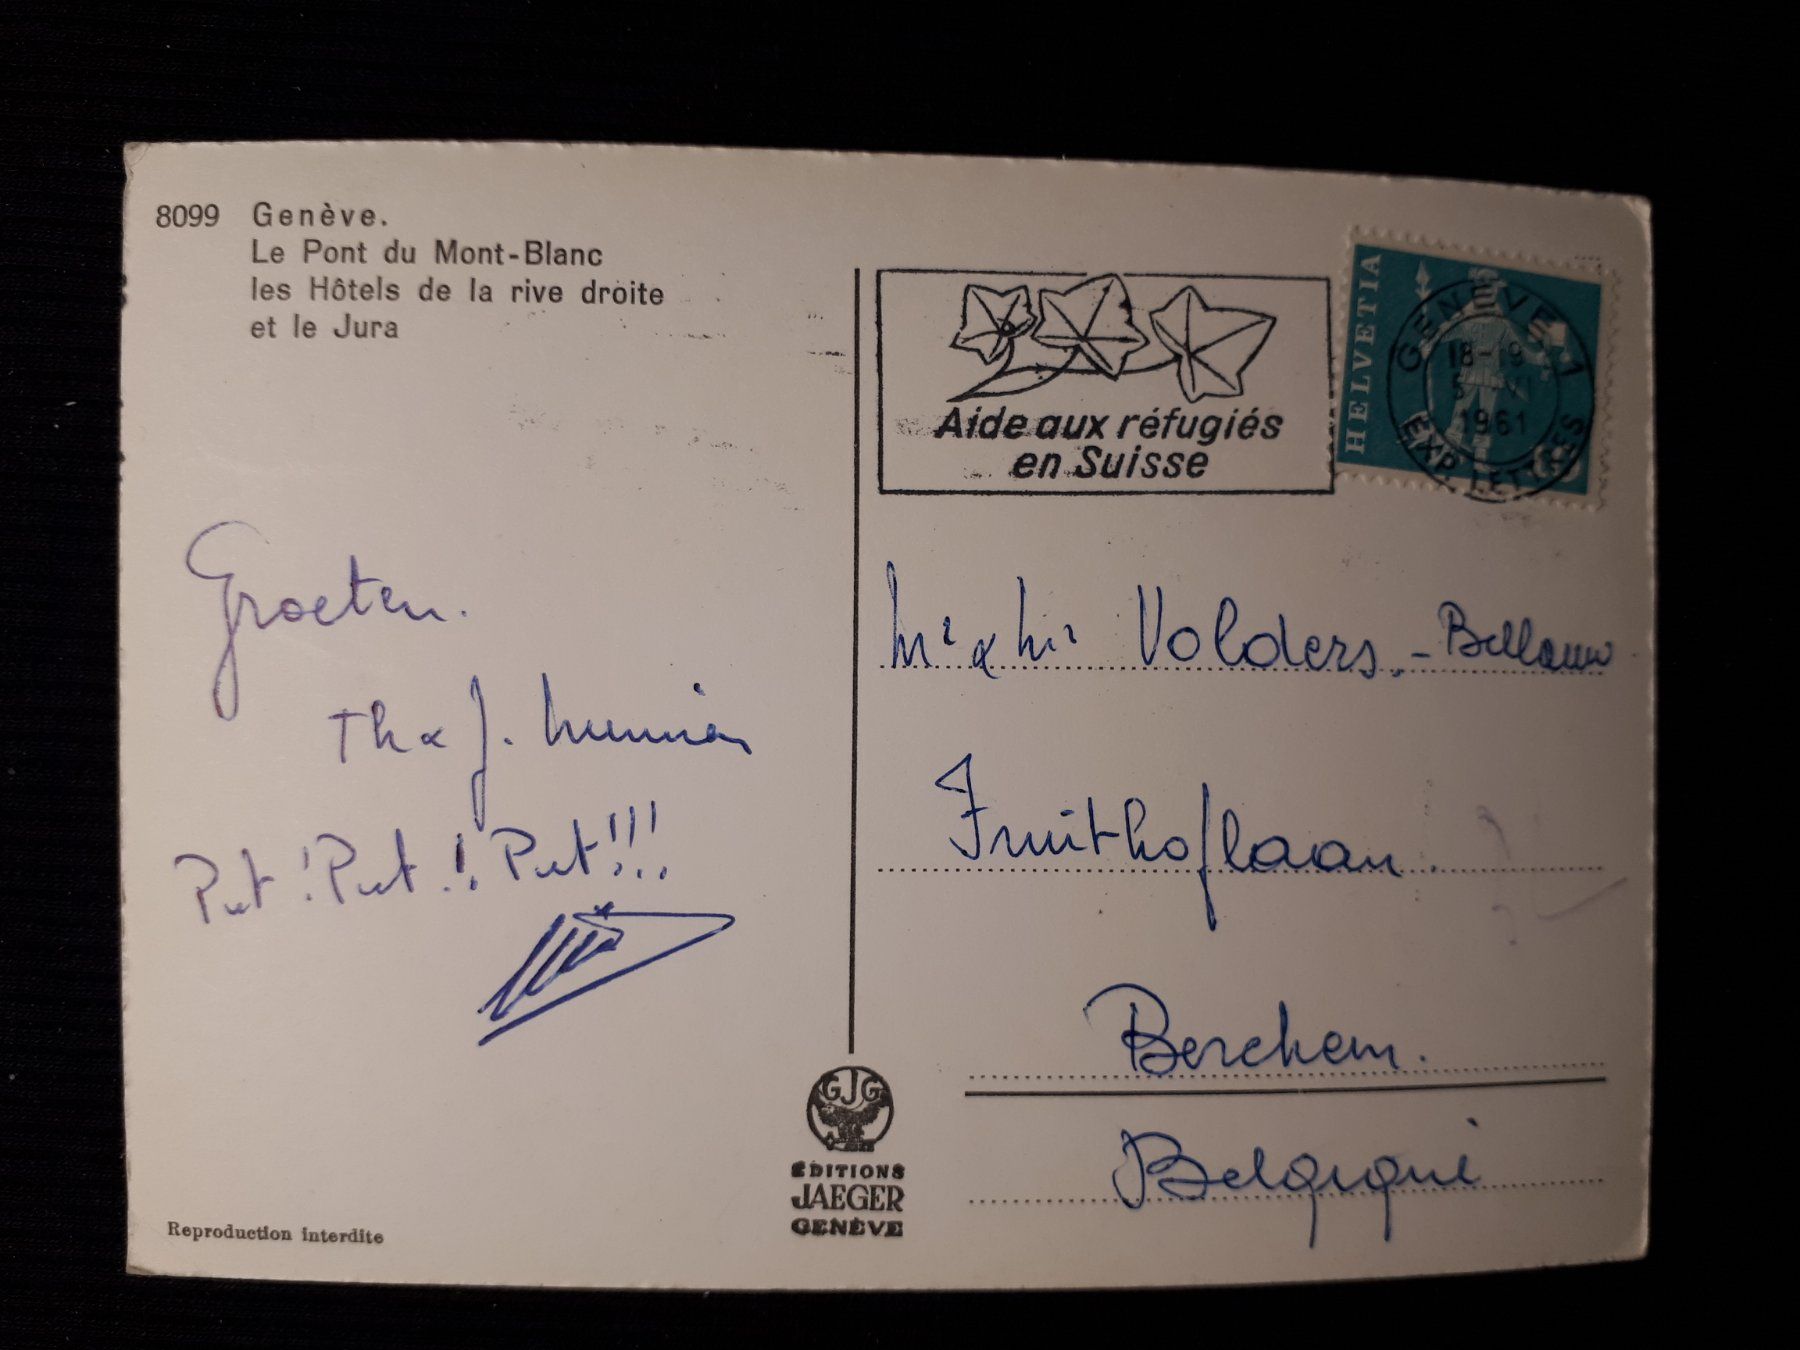 8099 Genève.
Le Pont du Mont-Blanc
les Hôtels de la rive droite
et le Jura
Aide aux réfugiés
en Suisse
HELVETIA
GENÈVE 1
18-19
1961
EXP. LETTRES
Groeten.
Th & J.
Put ! Put !! Put !!!
Mr & Mr Volders -
Fruithoflaan.
Berchem.
Belgiqui
GJG
ÉDITIONS
JAEGER
GENÈVE
Reproduction interdite